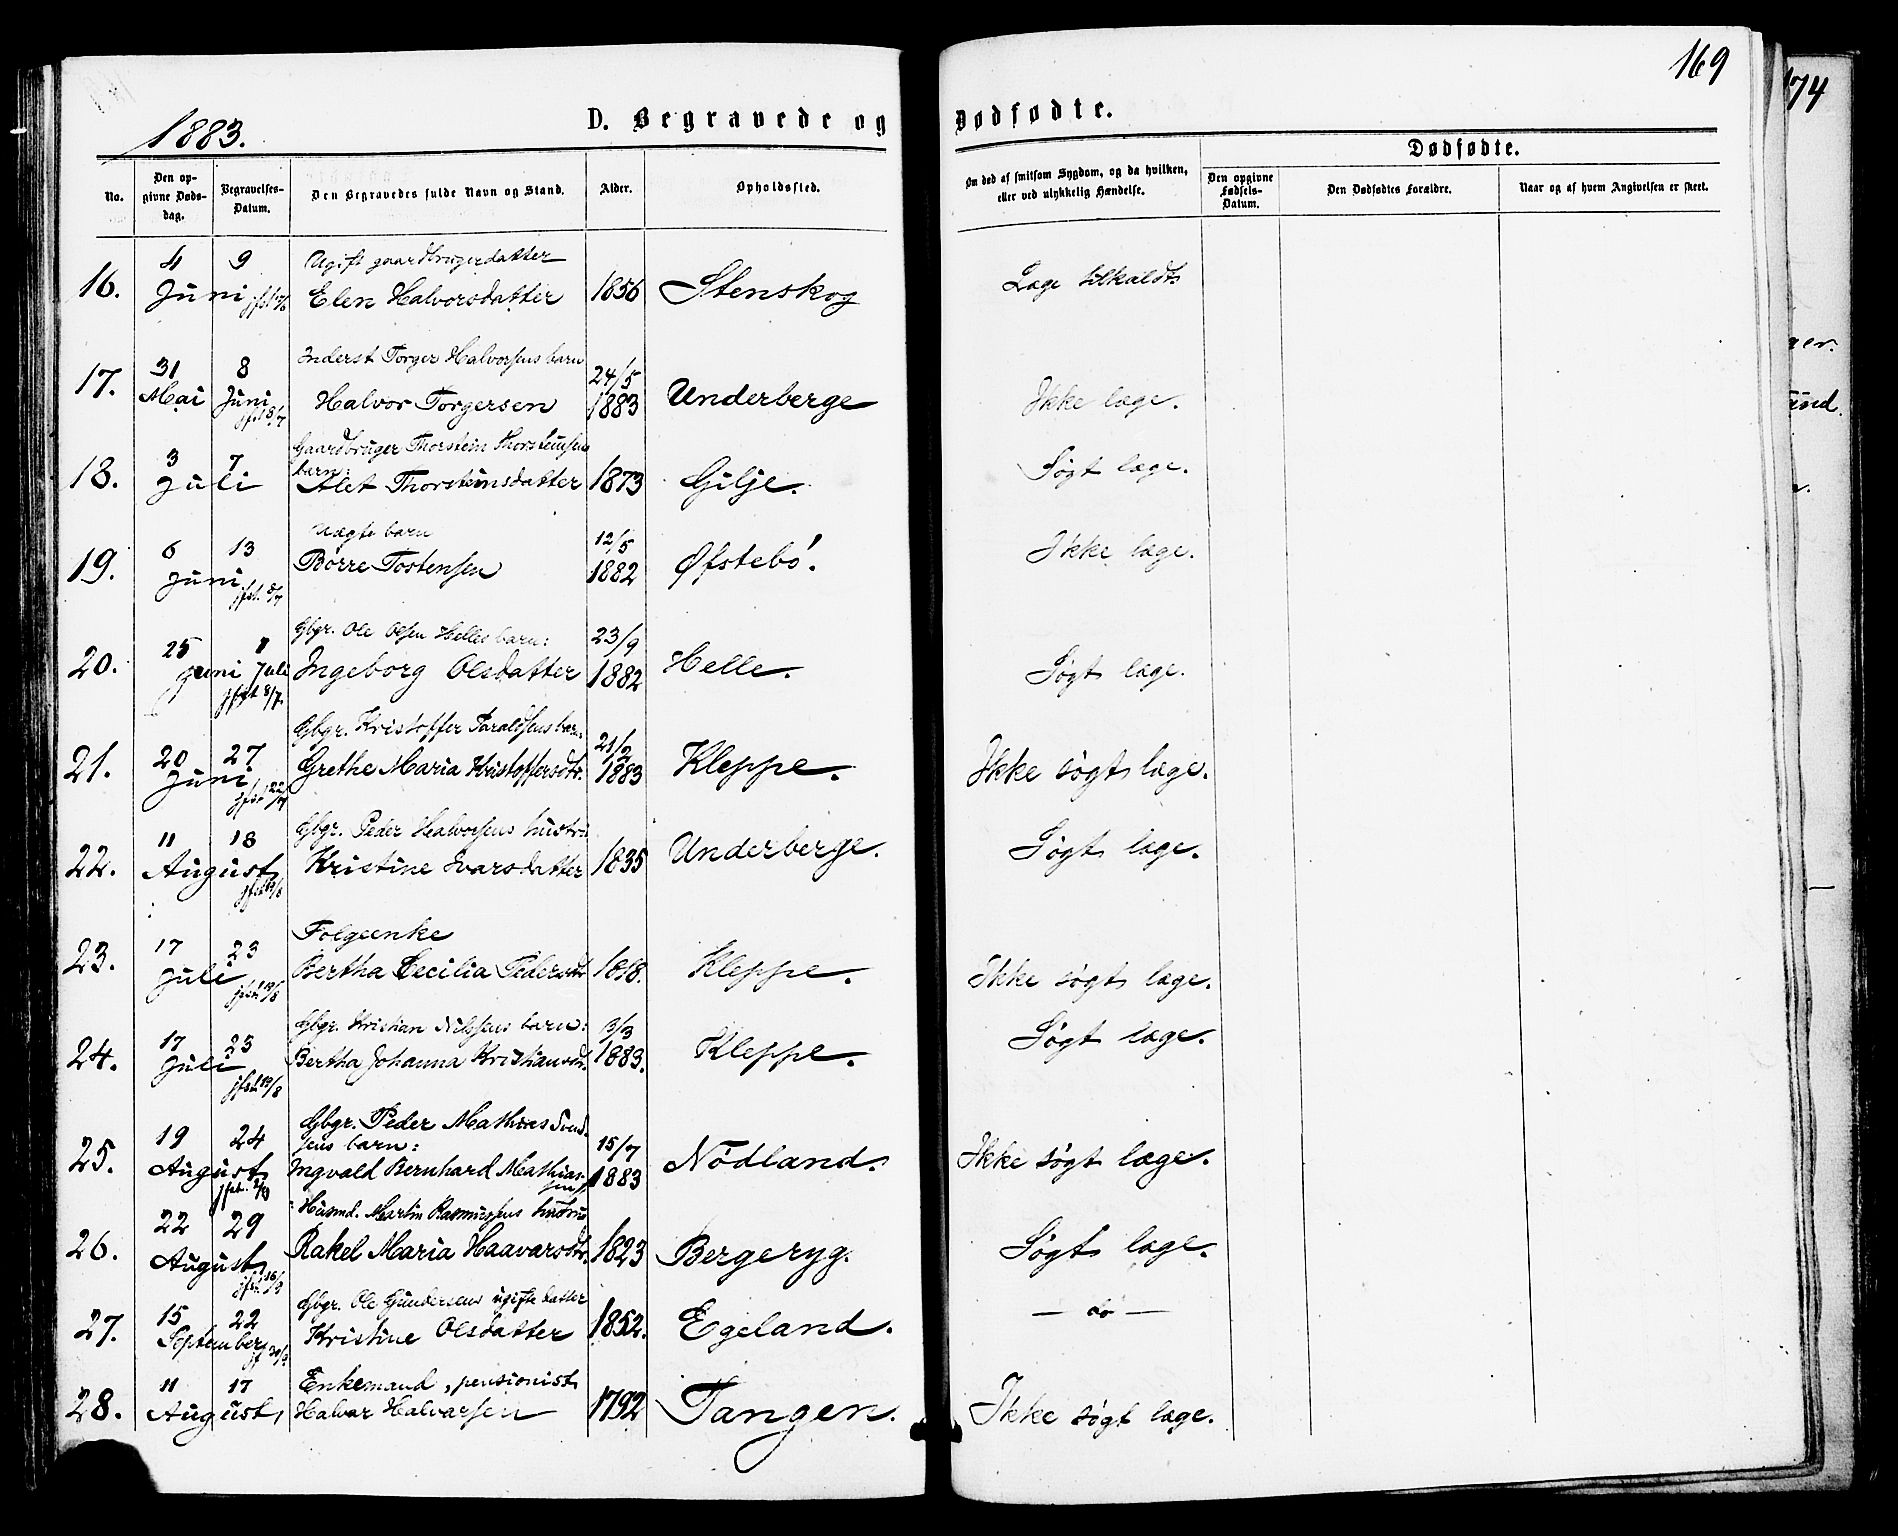 169
174
1883.
D. Begravede og Dødfødte.
No.
Den opgivne Dødsdag.
Begravelses-Datum.
Den Begravedes fulde Navn og Stand.
Alder.
Opholdssted.
Om død af smitsom Sygdom, og da hvilken, eller ved ulykkelig Hændelse.
Dødfødte.
Den opgivne Fødsels-Datum.
Den Dødfødtes Forældre.
Naar og af hvem Angivelsen er skeet.
4 9 Ugift gaardbrugerdatter
16. Juni Elen Halvorsdatter 1856 Stenskog Læge tilkaldt
31 8 Inderst Torger Halvorsens barn 24/5
17. Mai Juni jfst 8/7 Halvor Torgersen 1883 Underberge Ikke læge.
3 7 Gaardbruger Thorstein Thorsteinsens barn:
18. Juli Alet Thorsteinsdatter 1873 Gilje. Søgt læge.
6 13 Uægte barn 12/5
19. Juni jfst. 8/7 Børre Tostensen 1882 Øfstebø. Ikke læge.
25 1 Gbgr. Ole Olsen Helles barn: 23/9
20. Juni Juli jfst 8/7. Ingeborg Olsdatter 1882 Helle. Søgt læge.
20 27 Gbgr. Kristoffer Taraldsens barn: 21/2
21. Juni jfst 22/7 Grethe Maria Kristoffersdtr. 1883 Kleppe. Ikke søgt læge.
11 18 Gbgr. Peder Halvorsens hustru
22. August Kristine Ivarsdatter 1835 Underberge. Søgt læge.
17 23 Folgeenke
23. Juli jfst 19/8 Bertha Cecilia Pedersdt 1818. Kleppe. Ikke søgt læge.
17 23 Gbgr. Kristian Nilssens barn: 3/3
24. Juli jfst 19/8 Bertha Johanna Kristiansdt. 1883. Kleppe. Søgt læge.
19 24 Gbgr. Peder Mathias Svendsens barn: 15/7
25. August jfst. 2/9 Ingvald Bernhard Mathiassen 1883 Nødland. Ikke søgt læge.
22 29 Husmd. Martin Rasmussens hustru
26. August jfst 16/9 Rakel Maria Haavarsdtr. 1823 Bergeryg. Søgt læge.
15 22 Gbgr. Ole Gundersens ugifte datter
27. September Kristine Olsdatter 1852. Egeland. — do —
11 17 Enkemand, pensionist
28. August Halvar Halvarsen 1792 Tangen. Ikke søgt læge.